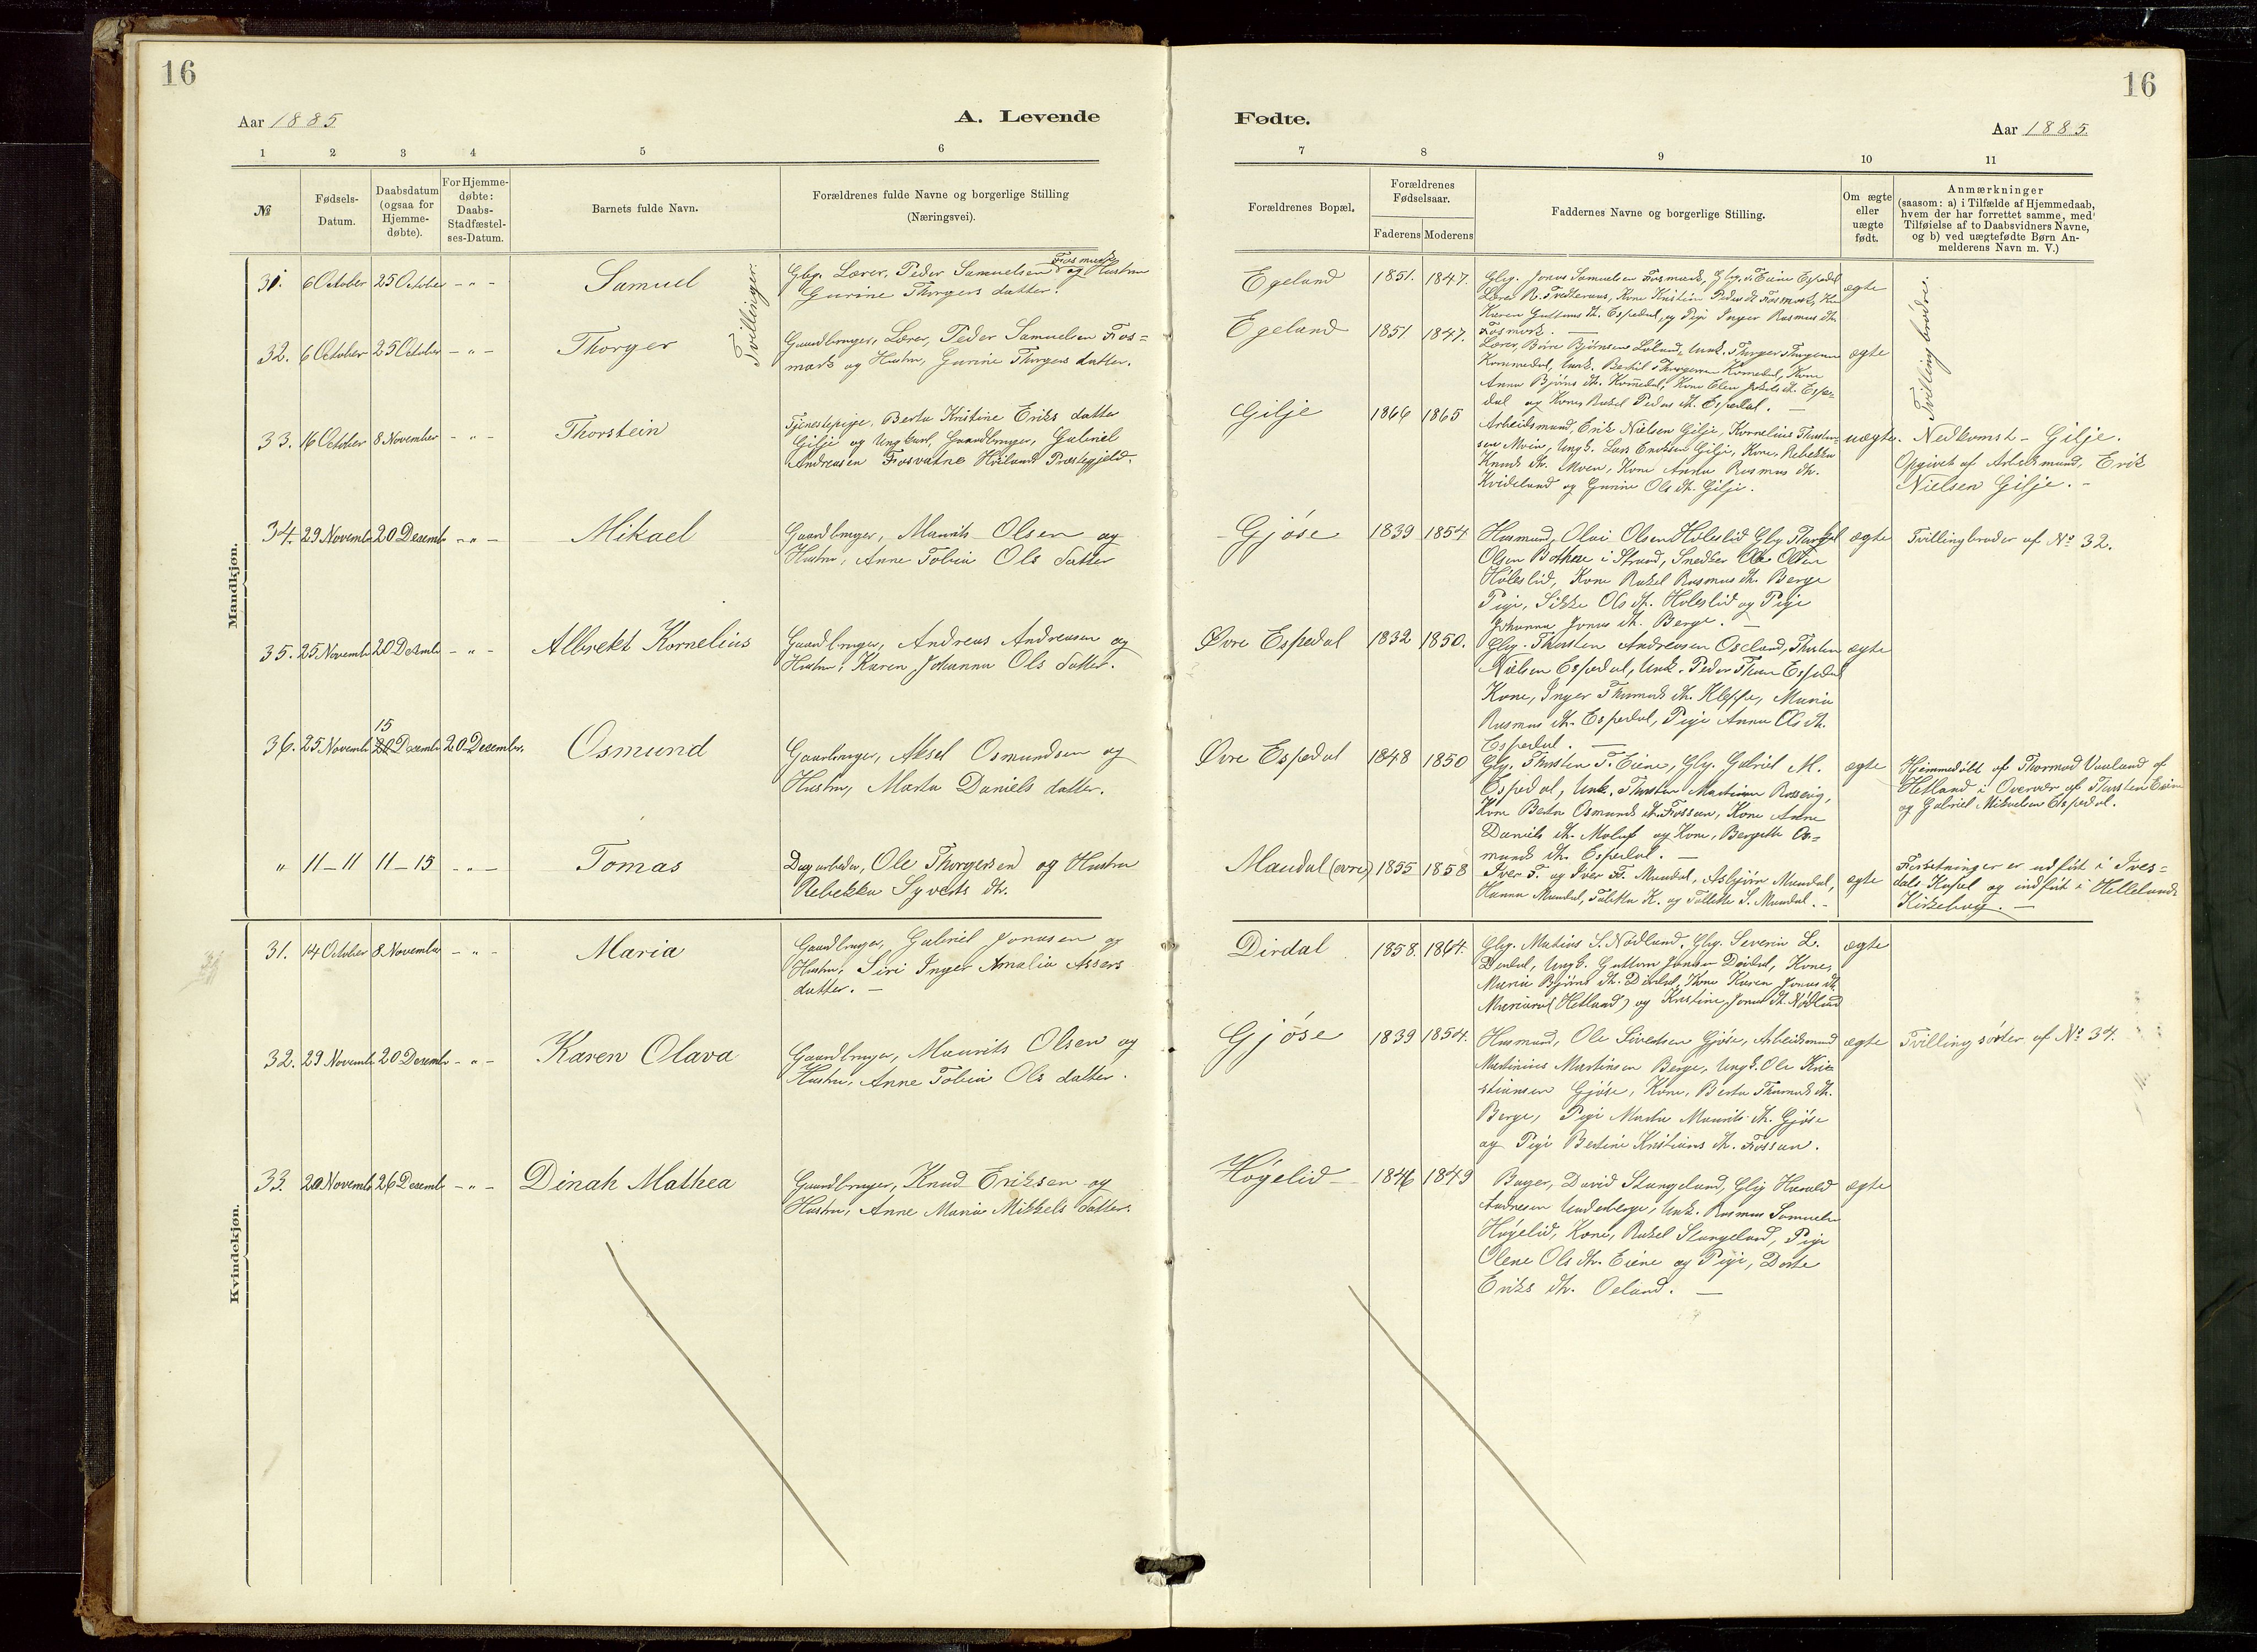 16
Aar 1885
A. Levende
1 2 3 4 5 6
№
Fødsels-
Datum.
Daabsdatum
(ogsaa for
Hjemme-
døbte).
For Hjemme-
døbte:
Daabs-
Stadfæstel-
ses-Datum.
Barnets fulde Navn.
Forældrenes fulde Navne og borgerlige Stilling
(Næringsvei).
Mandkjøn.
31. 6 October 25 October - " - Samuel
Tvillinger.
Gbg. Lærer, Peder Samuelsen Fosmark og Hustru
Gurine Thorgers datter.
32. 6 October 25 October - " - Thorger
Gaardbruger, Lærer, Peder Samuelsen Fos=
mark og Hustru, Gurine Thorgers datter.
33. 16 October 8 November - " - Thorstein
Tjenestepige, Berta Kristine Eriks datter
Gilje og Ungkarl, Gaardbruger, Gabriel
Andreasen Fosvatne Høilands Præstegjeld.
34. 29 Novemb 20 Desemb - " - Mikael
Gaardbruger, Maurits Olsen og
Hustru, Anne Tobia Ols datter
35. 25 Novemb 20 Desemb - " - Albrekt Kornelius
Gaardbruger, Andreas Andreasen og
Hustru, Karen Johanna Ols datter.
15
36. 25 Novemb 20 Desemb 20 December. Osmund
Gaardbruger, Aksel Osmundsen og
Hustru, Marta Daniels datter.
" 11-11 11-15 - " - Tomas
Dagarbeder, Ole Thorgersen) og Hustru
Rebekka Syverts dt.
Kvindekjøn.
31. 14 October 8 November - " - Maria
Gaardbruger, Gabriel Jonasen og
Hustru, Siri Inger Amalia Assers
datter. -
32. 29 Novemb 20 Desemb - " - Karen Olava
Gaardbruger, Maurits Olsen og
Hustru, Anne Tobia Ols datter.
33. 20 Novemb 26 Desemb - " - Dinah Mathea
Gaardbruger, Knud Eriksen og
Hustru, Anne Maria Mikkels datter.
16
Fødte.
Aar 1885
7 8 9 10 11
Forældrenes Bopæl.
Forældrenes
Fødselsaar.
Faderens Moderens
Faddernes Navne og borgerlige Stilling.
Om ægte
eller
uægte
født.
Anmærkninger
(saasom: a) i Tilfælde af Hjemmedaab,
hvem der har forrettet samme, med
Tilføielse af to Daabsvidners Navne,
og b) ved uægtefødte Børn An-
melderens Navn m. V.)
Egeland 1851. 1847. ægte
Gbg. Jonas Samuelsen Fosmark, Gbg. Eiene Espedal
Lærer R. Tvedteraas, Kone Kristin Peders dt. Fosmark,
Karen Guttorms dt. Espedal, og Pige Inger Rasmus dt.
Fosmark. -
Tvillingbrødre.
Egeland 1851 1847. ægte
Lærer, Børe Bjørnsen Løland, Unk. Thorger Thorgersen
Kommedal, Unk. Bertil Thorgersen Komedal, Kone
Anna Bjørns dt. Komedal, Kone Elen dt. Espe-
dal og Kone, Rakel Peders dt. Espedal. -
Gilje 1866 1865 uægte.
Arbeidsmand, Erik Nielsen Gilje, Kornelius Thorsten-
sen Moen, Ungk. Lars Eriksen Gilje, Kone, Rebekka
Knuds dt. Moen, Kone Anna Rasmus dt.
Kvideland og Gurine Ols dt. Gilje.
Nedkomst - Gilje.
Opgivet af Arbeidsmand, Erik
Nielsen Gilje. -
Gjøse 1839 1854 ægte
Husmand, Olai Olsen Høleslid Gbg.
Olsen Bothne i Strand, Snedker Ole Olsen
Høleslid, Kone Rakel Rasmus dt. Berge
Pige, Sikke Ols dt. Høleslid og Pige
Johanna Jonas dt. Berge. -
Tvillingbroder af No 32.
Øvre Espedal 1832 1850. ægte
Gbg. Thorsten Andreasen Oseland, Thorsten
Nielsen Espedal, Unk. Peder Espedal
Kone, Inger dt. Kleppe, Maria
Rasmus dt. Espedal, Pige Anna Ols dt.
Espedal. -
Øvre Espedal 1848 1850 ægte
Gbg. Thorsten T. Eiene, Gbg. Gabriel M.
Espedal, Unk. Thorsten Martinsen
Kone Berta Osmunds dt. Fossan, Kone Anne
Daniels dt. og Kone, Bergitte Os=
munds dt. Espedal. -
Hjemmedøbt af Thormod Vaaland af
Hetland i Overvær af Thorsten Eiene
og Gabriel Mikaelsen Espedal.
Maudal (øvre) 1855 1858 ægte
Iver T. og Iver Maudal, Asbjørn Maudal,
Hanna Maudal, Talette K. og Tollette S. Maudal. -
er udført i Ives=
dals Kapel og indført i Hellelands
Kirkebog. -
Dirdal 1858. 1864. ægte
Gbg. Matias S. Nødland, Gbg. Severin L.
Dirdal, Ungk. Guttorm Jonsen Dirdal, Kone,
Maria Bjørns dt. Dirdal, Kone Karen Jonas dt.
(Hetland) og Kristine Jonas dt. Nødland
Gjøse 1839 1854. ægte
Husmand, Ole Sivertsen Gjøse, Arbeidsmand
Martinius Martinsen Berge, Ungk. Ole Kri-
stiansen Gjøse, Kone, Berta dt.
Berge, Pige Marta Maurits dt. Gjøse
og Pige Bertine Kristians dt. Fossan.
Tvillingsøster af No 34.
Høgelid - 1846 1849 ægte
Bager, David Stangeland, Gbg Harald
Andresen Underberge, Unk. Rasmus Samuelsen
Høgelid, Kone, Rakel Stangeland, Pige
Olene Ols dt. Eiene og Pige, Dorte
Eriks dt. Oeland. -